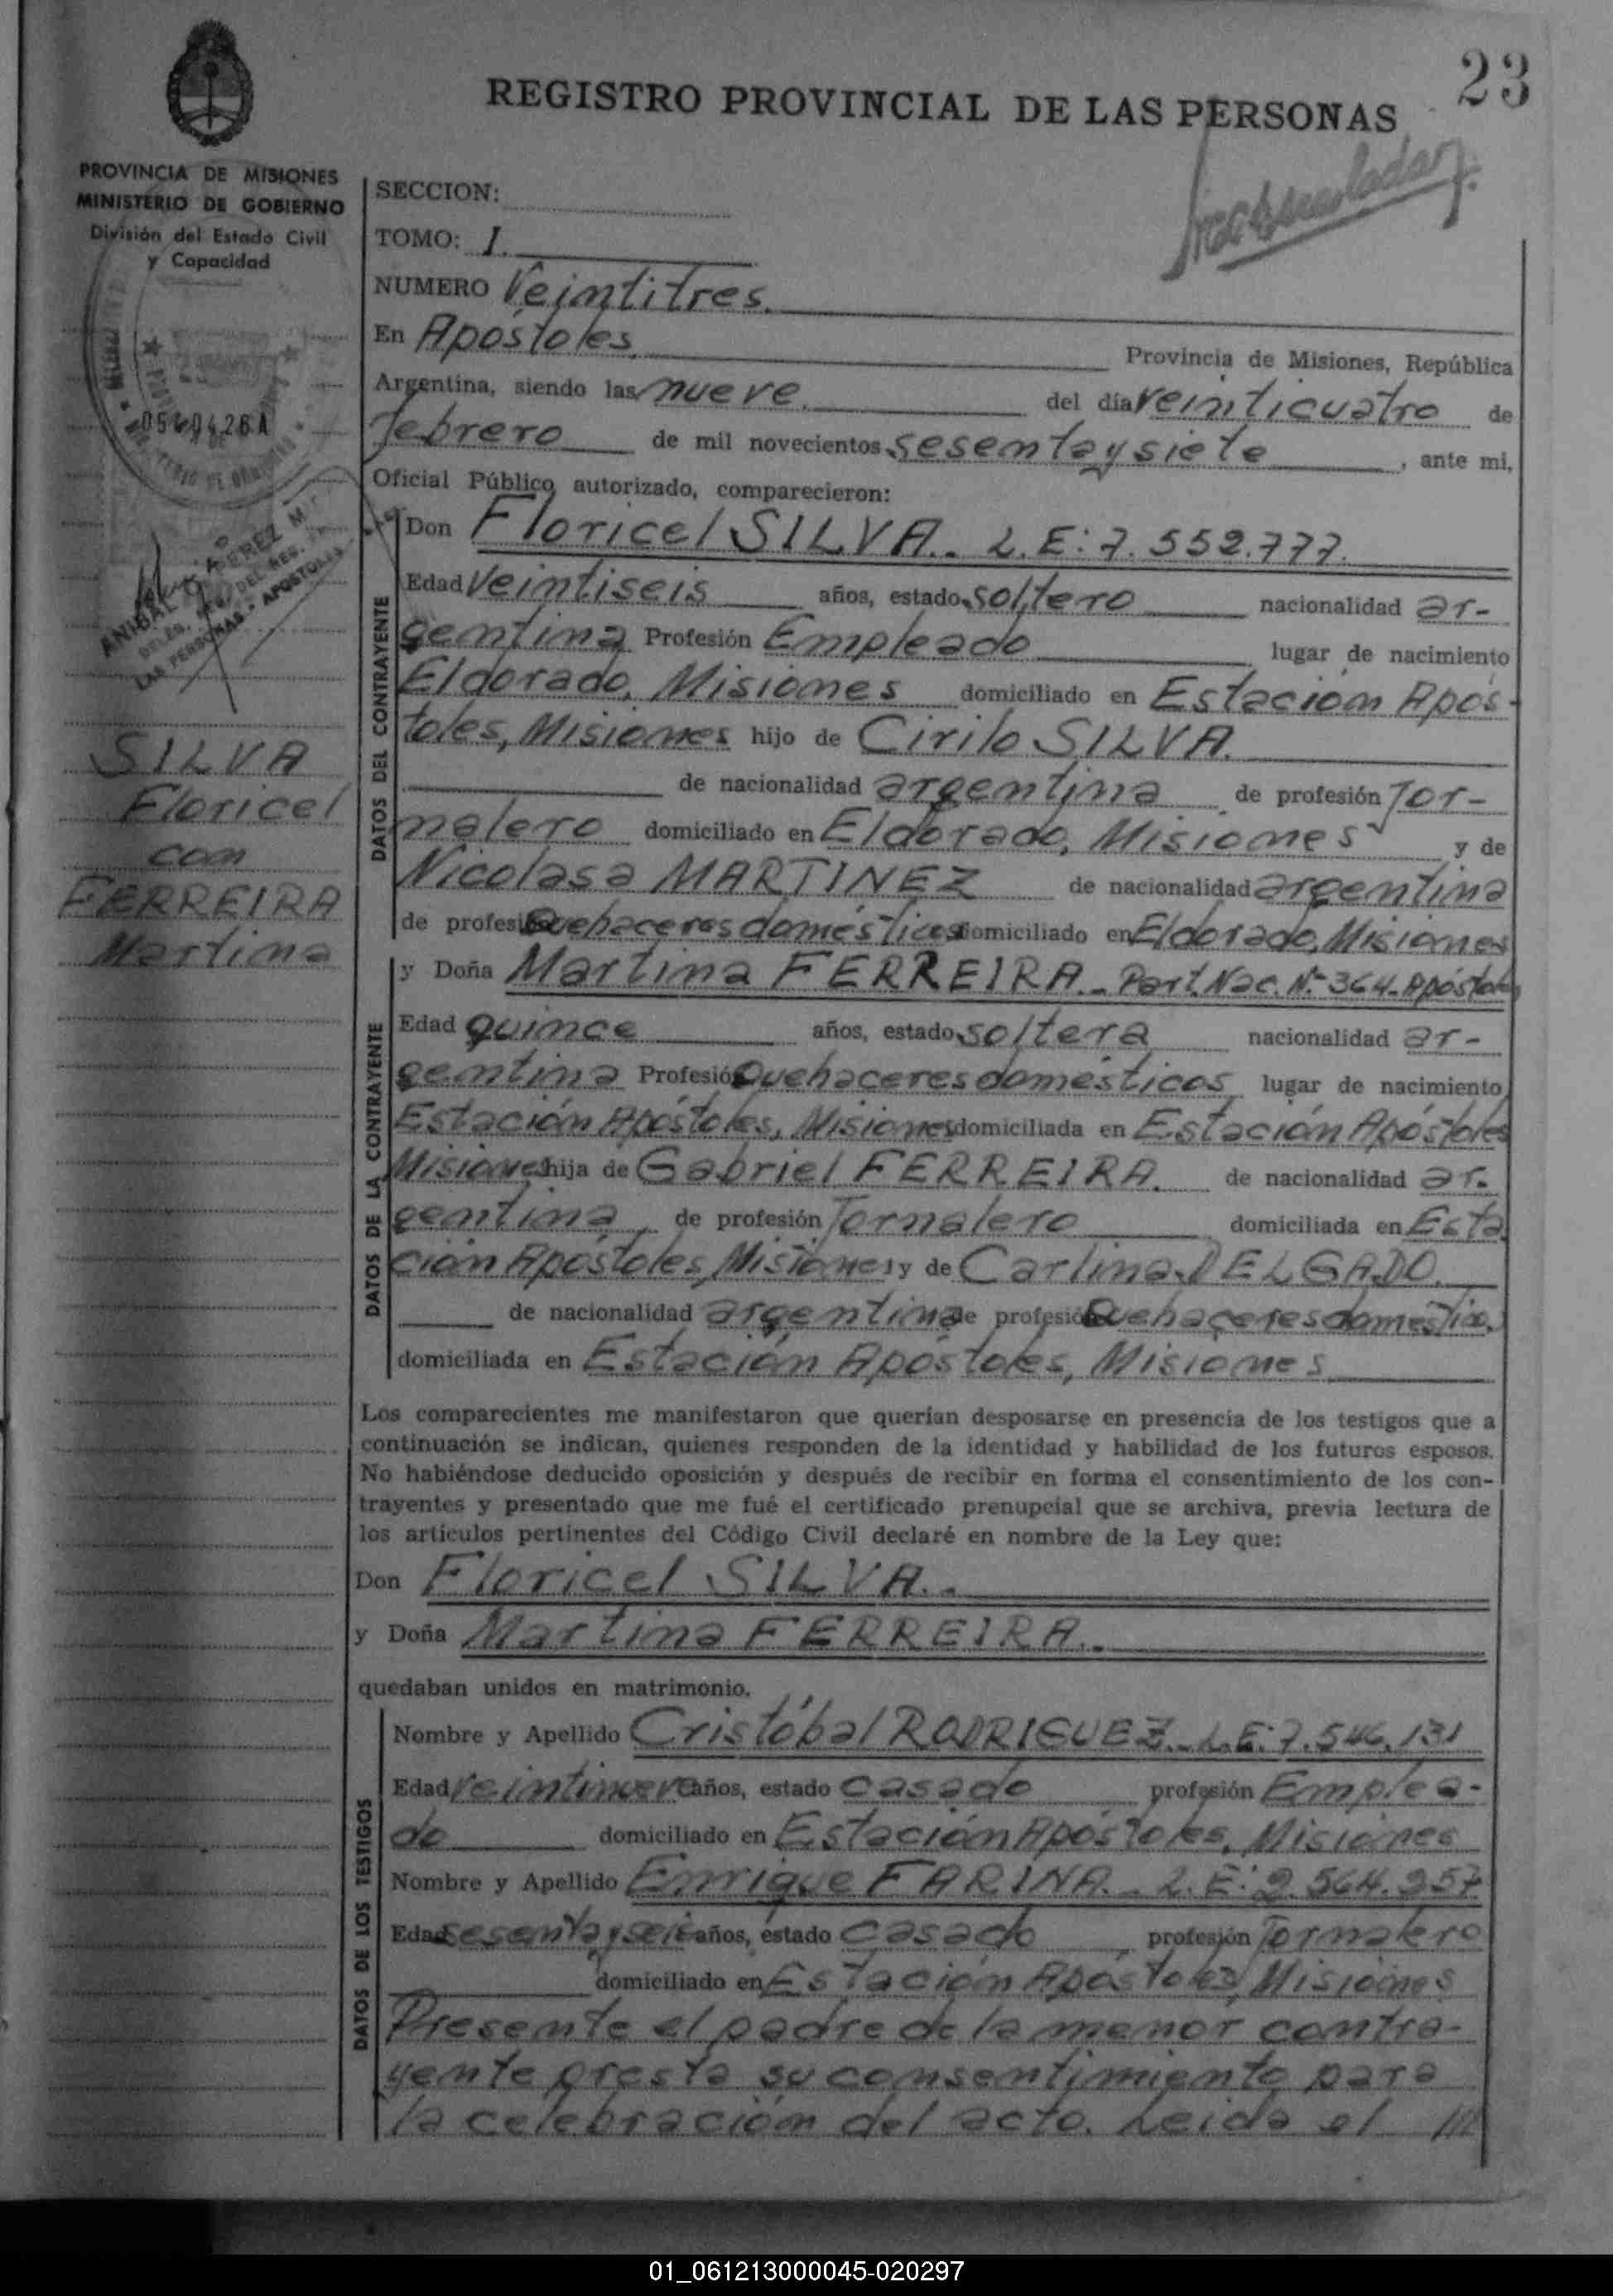 23
REGISTRO PROVINCIAL DE LAS PERSONAS
PROVINCIA DE MISIONES
MINISTERIO DE GOBIERNO
División del Estado Civil
y Capacidad
0560426A
ANIBAL PEREZ M
DELEG. DEL REG.
LAS PERSONAS - APOSTOLES
SILVA
Floricel
con
FERREIRA
Martina
SECCION:
TOMO: I.
NUMERO Veintitres.
En Apóstoles Provincia de Misiones, República
Argentina, siendo las nueve del día veinticuatro de
febrero de mil novecientos sesenta y siete, ante mi,
Oficial Público autorizado, comparecieron:
DATOS DEL CONTRAYENTE
Don Floricel SILVA.. L.E: 7.552.777.
Edad veintiseis años, estado soltero nacionalidad ar-
gentina Profesión Empleado lugar de nacimiento
Eldorado, Misiones domiciliado en Estación Após-
toles, Misiones hijo de Cirilo SILVA.
de nacionalidad argentina de profesión Jor-
nalero domiciliado en Eldorado, Misiones y de
Nicolasa MARTINEZ de nacionalidad argentina
de profesión Quehaceres domésticos domiciliado en Eldorado, Misiones
DATOS DE LA CONTRAYENTE
y Doña Martina FERREIRA.- Part. Nac. Nº 364- Apóstoles
Edad quince años, estado soltera nacionalidad ar-
gentina Profesión Quehaceres domésticos lugar de nacimiento
Estación Apóstoles, Misiones domiciliada en Estación Apóstoles
Misiones hija de Gabriel FERREIRA. de nacionalidad ar-
gentina de profesión Jornalero domiciliada en Esta
ción Apóstoles, Misiones y de Carlina DELGADO.
de nacionalidad argentina de profesión Quehaceres domestic.
domiciliada en Estación Apóstoles, Misiones
Los comparecientes me manifestaron que querían desposarse en presencia de los testigos que a
continuación se indican, quienes responden de la identidad y habilidad de los futuros esposos.
No habiéndose deducido oposición y después de recibir en forma el consentimiento de los con-
trayentes y presentado que me fué el certificado prenupcial que se archiva, previa lectura de
los artículos pertinentes del Código Civil declaré en nombre de la Ley que:
Don Floricel SILVA..
y Doña Martina FERREIRA..
quedaban unidos en matrimonio.
DATOS DE LOS TESTIGOS
Nombre y Apellido Cristóbal RODRIGUEZ.. L.E: 7.546.131
Edad veintinueve años, estado casado profesión Emplea-
do domiciliado en Estación Apóstoles, Misiones
Nombre y Apellido Enrique FARINA.. L.E: 2.564.257
Edad sesenta y seis años, estado casado profesión Jornalero
domiciliado en Estación Apóstoles, Misiones
Presente el padre de la menor contra-
yente presta su consentimiento para
la celebración del acto. Leida el
01_061213000045-020297